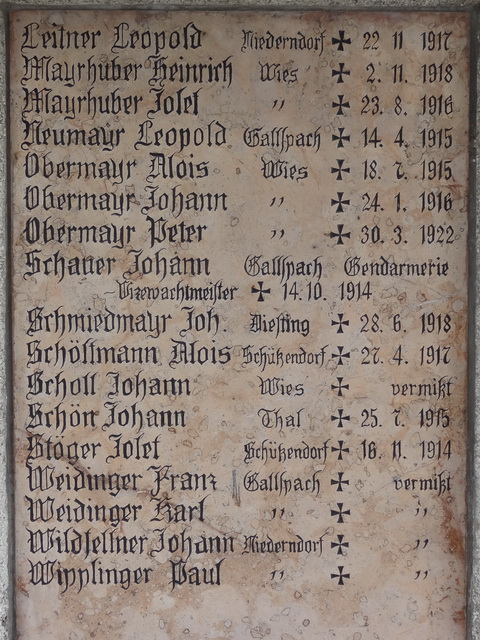 Leitner Leopold Niederndorf ✠ 22 11 1917
Mayrhuber Heinrich Wies ✠ 2. 11. 1918
Mayrhuber Josef " ✠ 23. 8. 1916
Neumayr Leopold Gallspach ✠ 14. 4. 1915
Obermayr Alois Wies ✠ 18. 7. 1915
Obermayr Johann " ✠ 24. 1. 1916
Obermayr Peter " ✠ 30. 3. 1922
Schauer Johann Gallspach Gendarmerie
-Vizewachtmeister ✠ 14.10. 1914
Schmiedmayr Joh. Diesting ✠ 28. 6. 1918
Schöffmann Alois Schützendorf ✠ 27. 4. 1917
Scholl Johann Wies ✠ vermißt
Schön Johann Thal ✠ 25. 7. 1915
Stöger Josef Schützendorf ✠ 16. 11. 1914
Weidinger Franz Gallspach ✠ vermißt
Weidinger Karl " ✠ "
Wildfellner Johann Niederndorf ✠ "
Wipplinger Paul " ✠ "